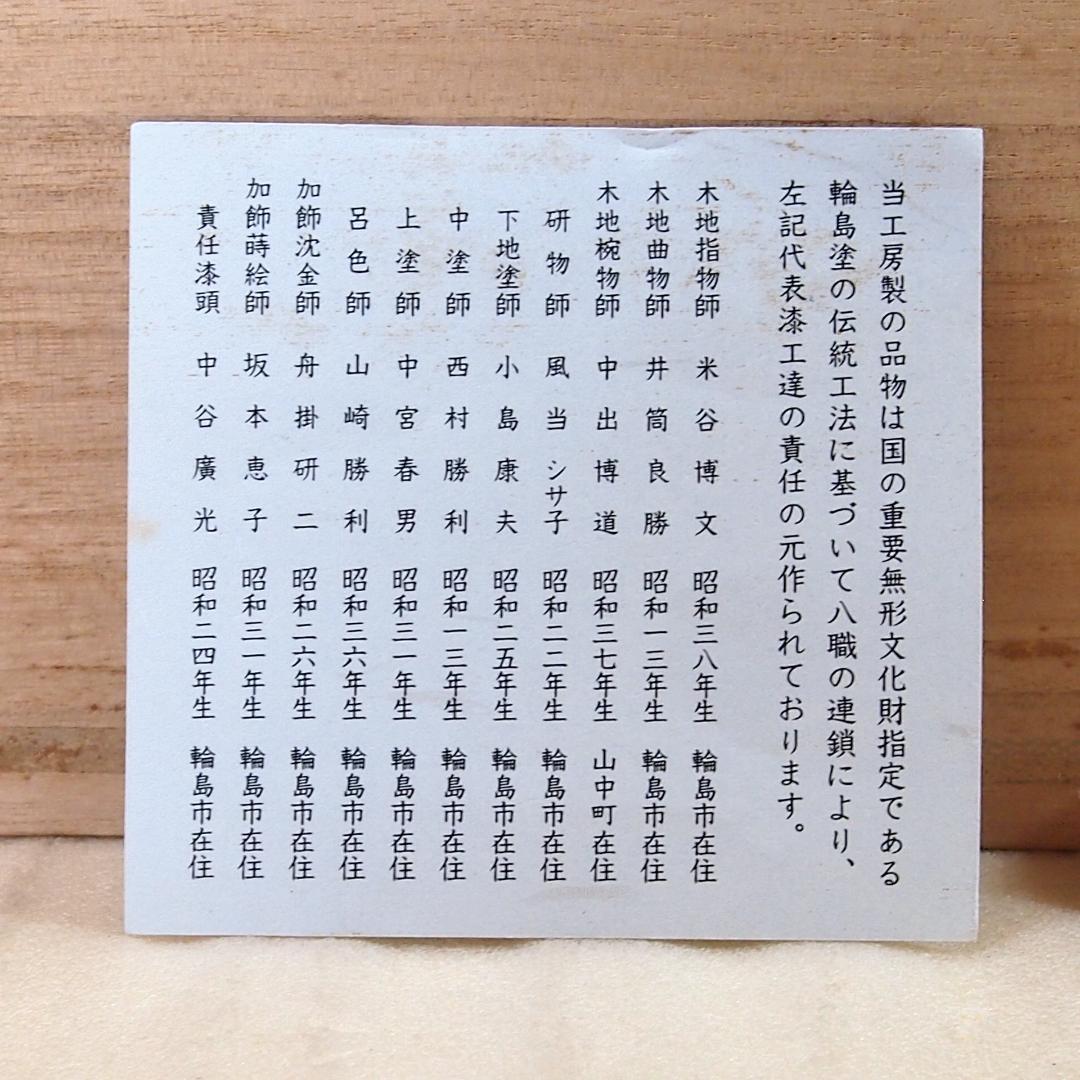 当工房製の品物は国の重要無形文化財指定である
輪島塗の伝統工法に基づいて八職の連鎖により、
左記代表漆工達の責任の元作られております。
木地指物師 米谷博文 昭和三八年生 輪島市在住
木地曲物師 井筒良勝 昭和一三年生 輪島市在住
木地椀物師 中出博道 昭和三七年生 山中町在住
研物師 風当シサ子 昭和二二年生 輪島市在住
下地塗師 小島康夫 昭和二五年生 輪島市在住
中塗師 西村勝利 昭和一三年生 輪島市在住
上塗師 中宮春男 昭和三一年生 輪島市在住
呂色師 山崎勝利 昭和三六年生 輪島市在住
加飾沈金師 舟掛研二 昭和二六年生 輪島市在住
加飾蒔絵師 坂本恵子 昭和三一年生 輪島市在住
責任漆頭 中谷廣光 昭和二四年生 輪島市在住